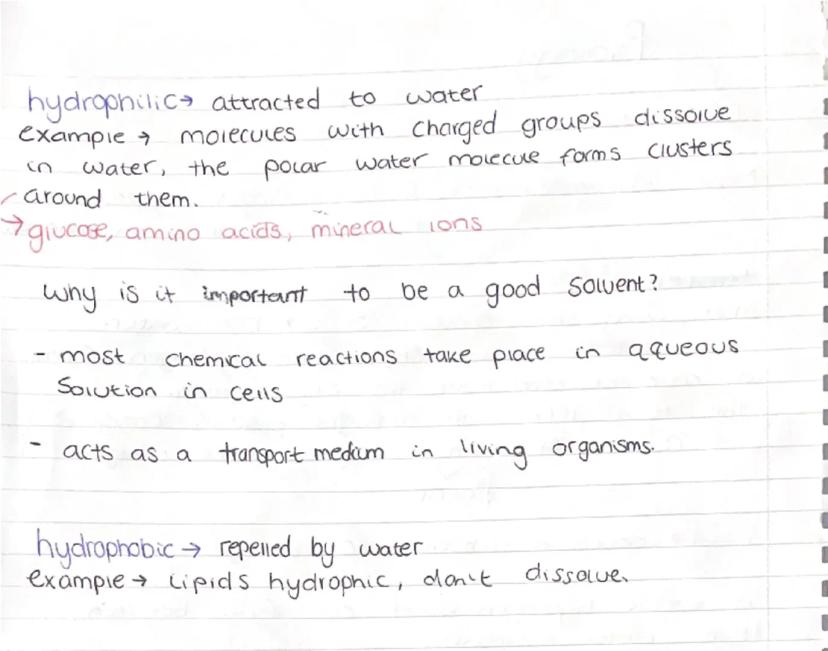 hydrophilic→ attracted to water
example → molecules with charged groups dissolve
in water, the polar water molecule forms clusters
around them.
→ glucose, amino acids, mineral ions
Why is it important to be a good solvent?
- most chemical reactions take place in aqueous
Solution in cells
- acts as a transport medium in living organisms.
hydrophobic → repelled by water
example → lipids hydrophic, don't dissolve.